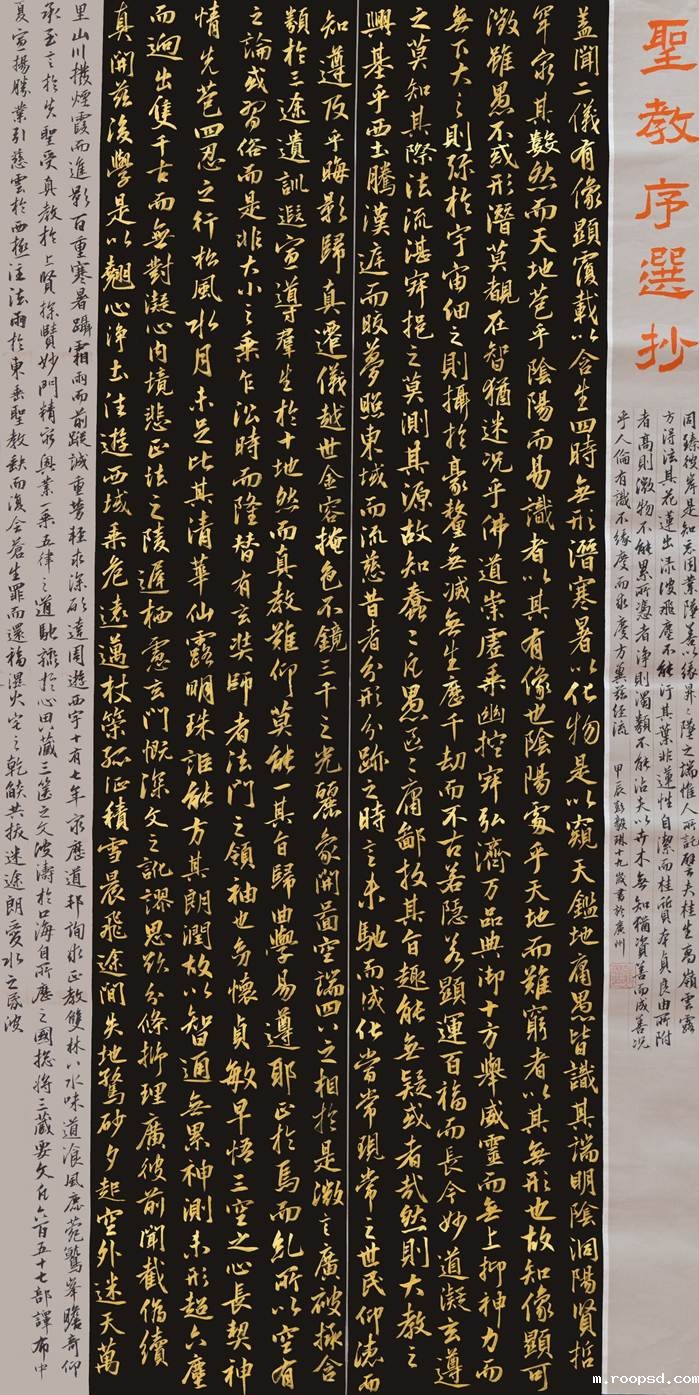 聖教序選抄
蓋聞二儀有像顯覆載以含生四時無形潛寒暑以化物是以窺天鑑地庸愚皆識其端明陰洞陽賢哲
罕窮其數然而天地苞乎陰陽而易識者以其有像也陰陽處乎天地而難窮者以其無形也故知像顯可
徵雖愚不惑形潛莫覩在智猶迷況乎佛道崇虛乘幽控寂弘濟万品典御十方舉威靈而無上抑神力而
無下大之則彌於宇宙細之則攝於豪釐無滅無生歷千劫而不古若隱若顯運百福而長今妙道凝玄遵
之莫知其際法流湛寂挹之莫測其源故知蠢蠢凡愚區區庸鄙投其旨趣能無疑或者哉然則大教之
興基乎西土騰漢庭而皎夢照東域而流慈昔者分形分跡之時言未馳而成化當常現常之世民仰德而
知遵及乎晦影歸真遷儀越世金容掩色不鏡三千之光麗象開圖空端四八之相於是微言廣被拯含
類於三途遺訓遐宣導羣生於十地然而真教難仰莫能一其旨歸曲學易遵耶正於焉而糺所以空有
之論或習俗而是非大小之乘乍沿時而隆替有玄奘師者法門之領袖也幼懷貞敏早悟三空之心長契神
情先苞四忍之行松風水月未足比其清華仙露明珠詎能方其朗潤故以智通無累神測未形超六塵
而迥出隻千古而無對凝心內境悲正法之陵遲栖慮玄門慨深文之訛謬思欲分條析理廣彼前聞截偽續
真開茲後學是以翹心淨土往遊西域乘危遠邁杖策孤征積雪晨飛途閒失地驚砂夕起空外迷天萬
里山川撥煙霞而進影百重寒暑躡霜雨而前蹤誠重勞輕求深願達周遊西宇十有七年窮歷道邦詢求正教雙林八水味道飡風鹿菀鷲峯瞻奇仰
承至言於先聖受真教於上賢探賾妙門精窮奧業一乘五律之道馳驟於心田八藏三篋之文波濤於口海自所歷之國總將三藏要文凡六百五十七部譯布中
夏宣揚勝業引慈雲於西極注法雨於東垂聖教缺而復全蒼生罪而還福濕火宅之乾燄共拔迷途朗愛水之昏波
同臻彼岸是知惡因業墜善以緣昇昇墜之端惟人所託譬夫桂生高嶺雲露
方得泫其花蓮出淥波飛塵不能汙其葉非蓮性自潔而桂質本貞良由所附
者高則微物不能累所憑者淨則濁類不能沾夫以卉木無知猶資善而成善況
乎人倫有識不緣慶而求慶方冀茲經流 甲辰彭毅琳十九歲書於廣州
m.roopsd.com